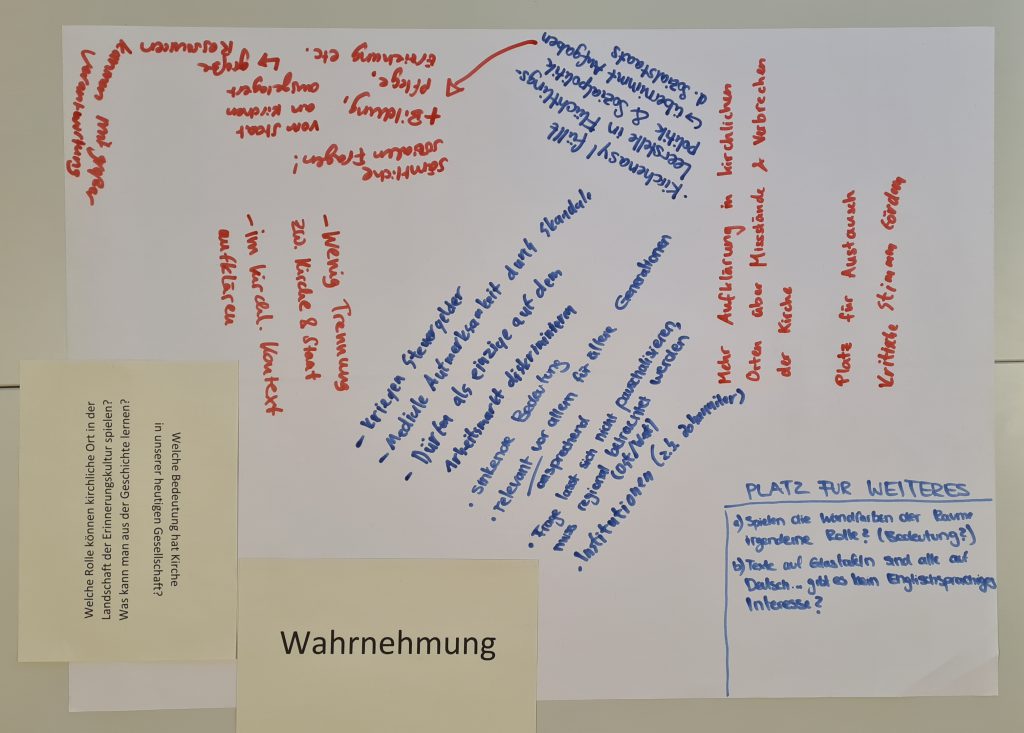 Wahrnehmung
Welche Bedeutung hat Kirche
in unserer heutigen Gesellschaft?
Welche Rolle können kirchliche Ort in der
Landschaft der Erinnerungskultur spielen?
Was kann man aus der Geschichte lernen?
- kriegen Steuergelder
- Mediale Aufmerksamkeit durch Skandale
- Dürfen als einzige auf dem
Arbeitsmarkt diskriminieren
• sinkende Bedeutung
• relevant vor allem für ältere Generationen
ansprechend
• Frage lässt sich nicht pauschalisieren,
muss regional betrachtet werden
(Ost/West)
• Institutionen (z.B. als Arbeitgeber)
- Wenig Trennung
zw. Kirche & Staat
- im kirchl. Kontext
aufklären
• Kirchenasyl füllt
Leerstelle in Flüchtlings-
politik & Sozialpolitik
↳ übernimmt Aufgaben
d. Sozialstaats
+ Bildung,
Pflege,
Erziehung etc.
sämtliche
sozialen Fragen!
vom Staat
an Kirchen
ausgelagert
↳ große
Ressourcen
kommen mit großer
Verantwortung
Mehr Aufklärung in kirchlichen
Orten über Missstände & Verbrechen
der Kirche
Platz für Austausch
Kritische Stimmen fördern
PLATZ FÜR WEITERES
a) Spielen die Wandfarben der Räume
irgendeine Rolle? (Bedeutung?)
b) Texte auf Glastafeln sind alle auf
Deutsch... gibt es kein Englischsprachiges
Interesse?